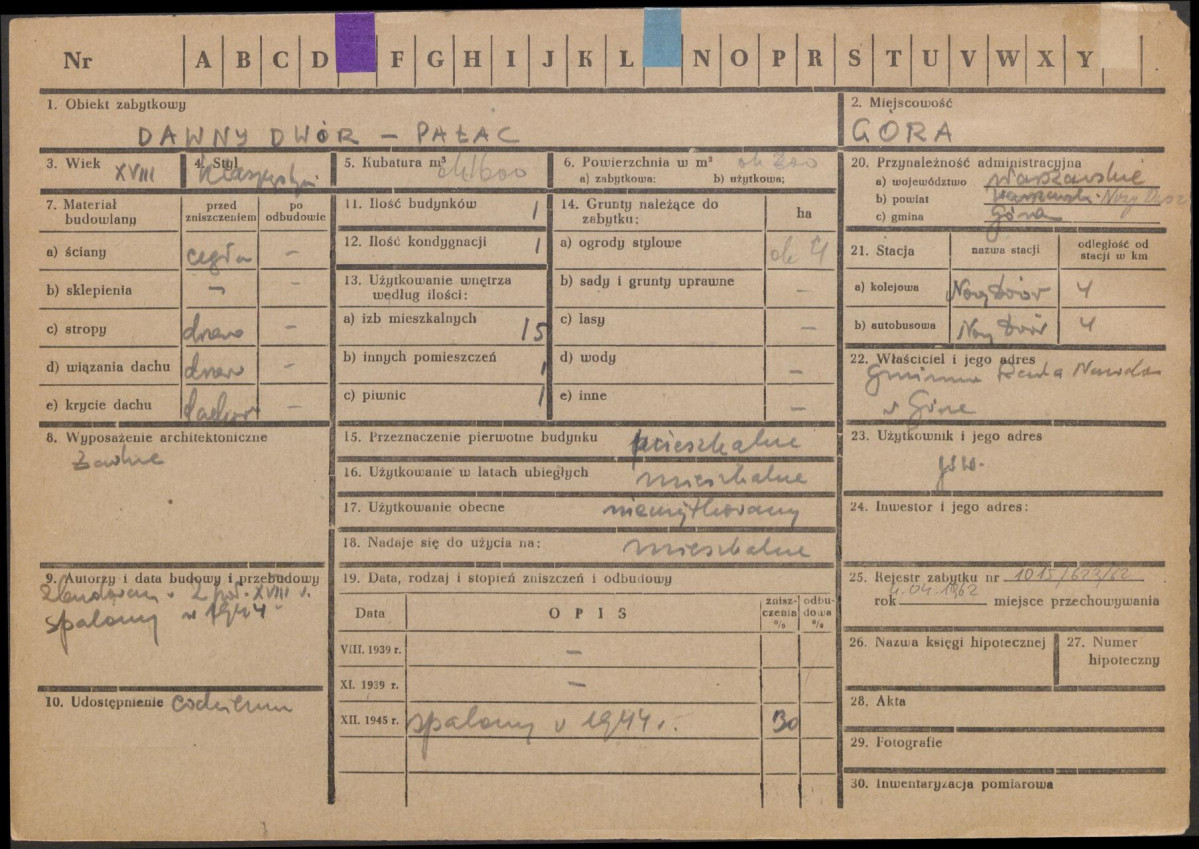 Nr A B C D F G H I J K L N O P R S T U V W X Y
1. Obiekt zabytkowy
DAWNY DWÓR – PAŁAC
2. Miejscowość
GÓRA
3. Wiek XVIII
4. Styl
5. Kubatura m³ ok 1600
6. Powierzchnia w m² ok 200
a) zabytkowa: b) użytkowa;
7. Materiał budowlany
przed zniszczeniem
po odbudowie
a) ściany cegła –
b) sklepienia – –
c) stropy drewno –
d) wiązania dachu drewno –
e) krycie dachu –
11. Ilość budynków 1
12. Ilość kondygnacji 1
13. Użytkowanie wnętrza
według ilości:
a) izb mieszkalnych 15
b) innych pomieszczeń 1
c) piwnic 1
14. Grunty należące do
zabytku: ha
a) ogrody stylowe ok 4
b) sady i grunty uprawne –
c) lasy –
d) wody –
e) inne –
8. Wyposażenie architektoniczne
żadne
9. Autorzy i data budowy i przebudowy
2 poł. XVIII w.
spalony w 1944
10. Udostępnienie
15. Przeznaczenie pierwotne budynku mieszkalne
16. Użytkowanie w latach ubiegłych mieszkalne
17. Użytkowanie obecne nieużytkowany
18. Nadaje się do użycia na: mieszkalne
19. Data, rodzaj i stopień zniszczeń i odbudowy
Data OPIS znisz-
czenia
% odbu-
dowa
%
VIII. 1939 r. –
XI. 1939 r. –
XII. 1945 r. spalony w 1944 r. 30
20. Przynależność administracyjna
a) województwo warszawskie
b) powiat warszawski Nowy
c) gmina Góra
21. Stacja
nazwa stacji
odległość od
stacji w km
a) kolejowa Nowy Dwór 4
b) autobusowa Nowy Dwór 4
22. Właściciel i jego adres
Gminna Rada Narodowa
w Górze
23. Użytkownik i jego adres
j.w.
24. Inwestor i jego adres:
25. Rejestr zabytku nr 1015/623/62
4.04.1962
rok miejsce przechowywania
26. Nazwa księgi hipotecznej
27. Numer
hipoteczny
28. Akta
29. Fotografie
30. Inwentaryzacja pomiarowa